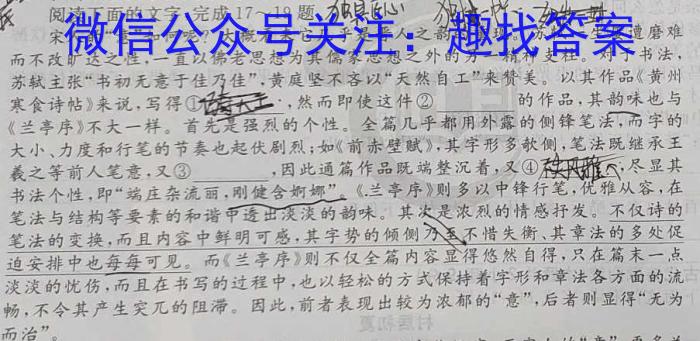 阅读下面的文字,完成17~19题。
微信公众号关注：趣找答案
而不改旷达之性,一直以佛老思想为其儒家思想之外的另一精神支柱。对于书法,
苏轼主张“书初无意于佳乃佳”,黄庭坚不吝以“天然自工”来赞美。以其作品《黄州
寒食诗帖》来说,写得① ,然而即使这件② 的作品,其韵味也与
《兰亭序》不大一样。首先是强烈的个性。全篇几乎都用外露的侧锋笔法,而字的
大小、力度和行笔的节奏也起伏剧烈;如《前赤壁赋》,其字形多欹侧,笔法既继承王
羲之等前人笔意,又③ ,因此通篇作品既端整沉着,又④ ,尽显其
书法个性,即“端庄杂流丽,刚健含婀娜”。《兰亭序》则多以中锋行笔,优雅从容,在
笔法与结构等要素的和谐中透出淡淡的韵味。其次是浓烈的情感抒发。不仅诗的
笔法的变换,而且内容中鲜明可感,其字势的倾侧乃至不惜失衡、其章法的多处促
迫安排中也每每可见。而《兰亭序》则不仅全篇内容显得悠然自得,只在篇末一点
淡淡的忧伤,而且在书写的过程中,也以轻松的方式保持着字形和章法各方面的流
畅,不令其产生突兀的阻滞。因此,前者表现出较为浓郁的“意”,后者则显得“无为
而治”。